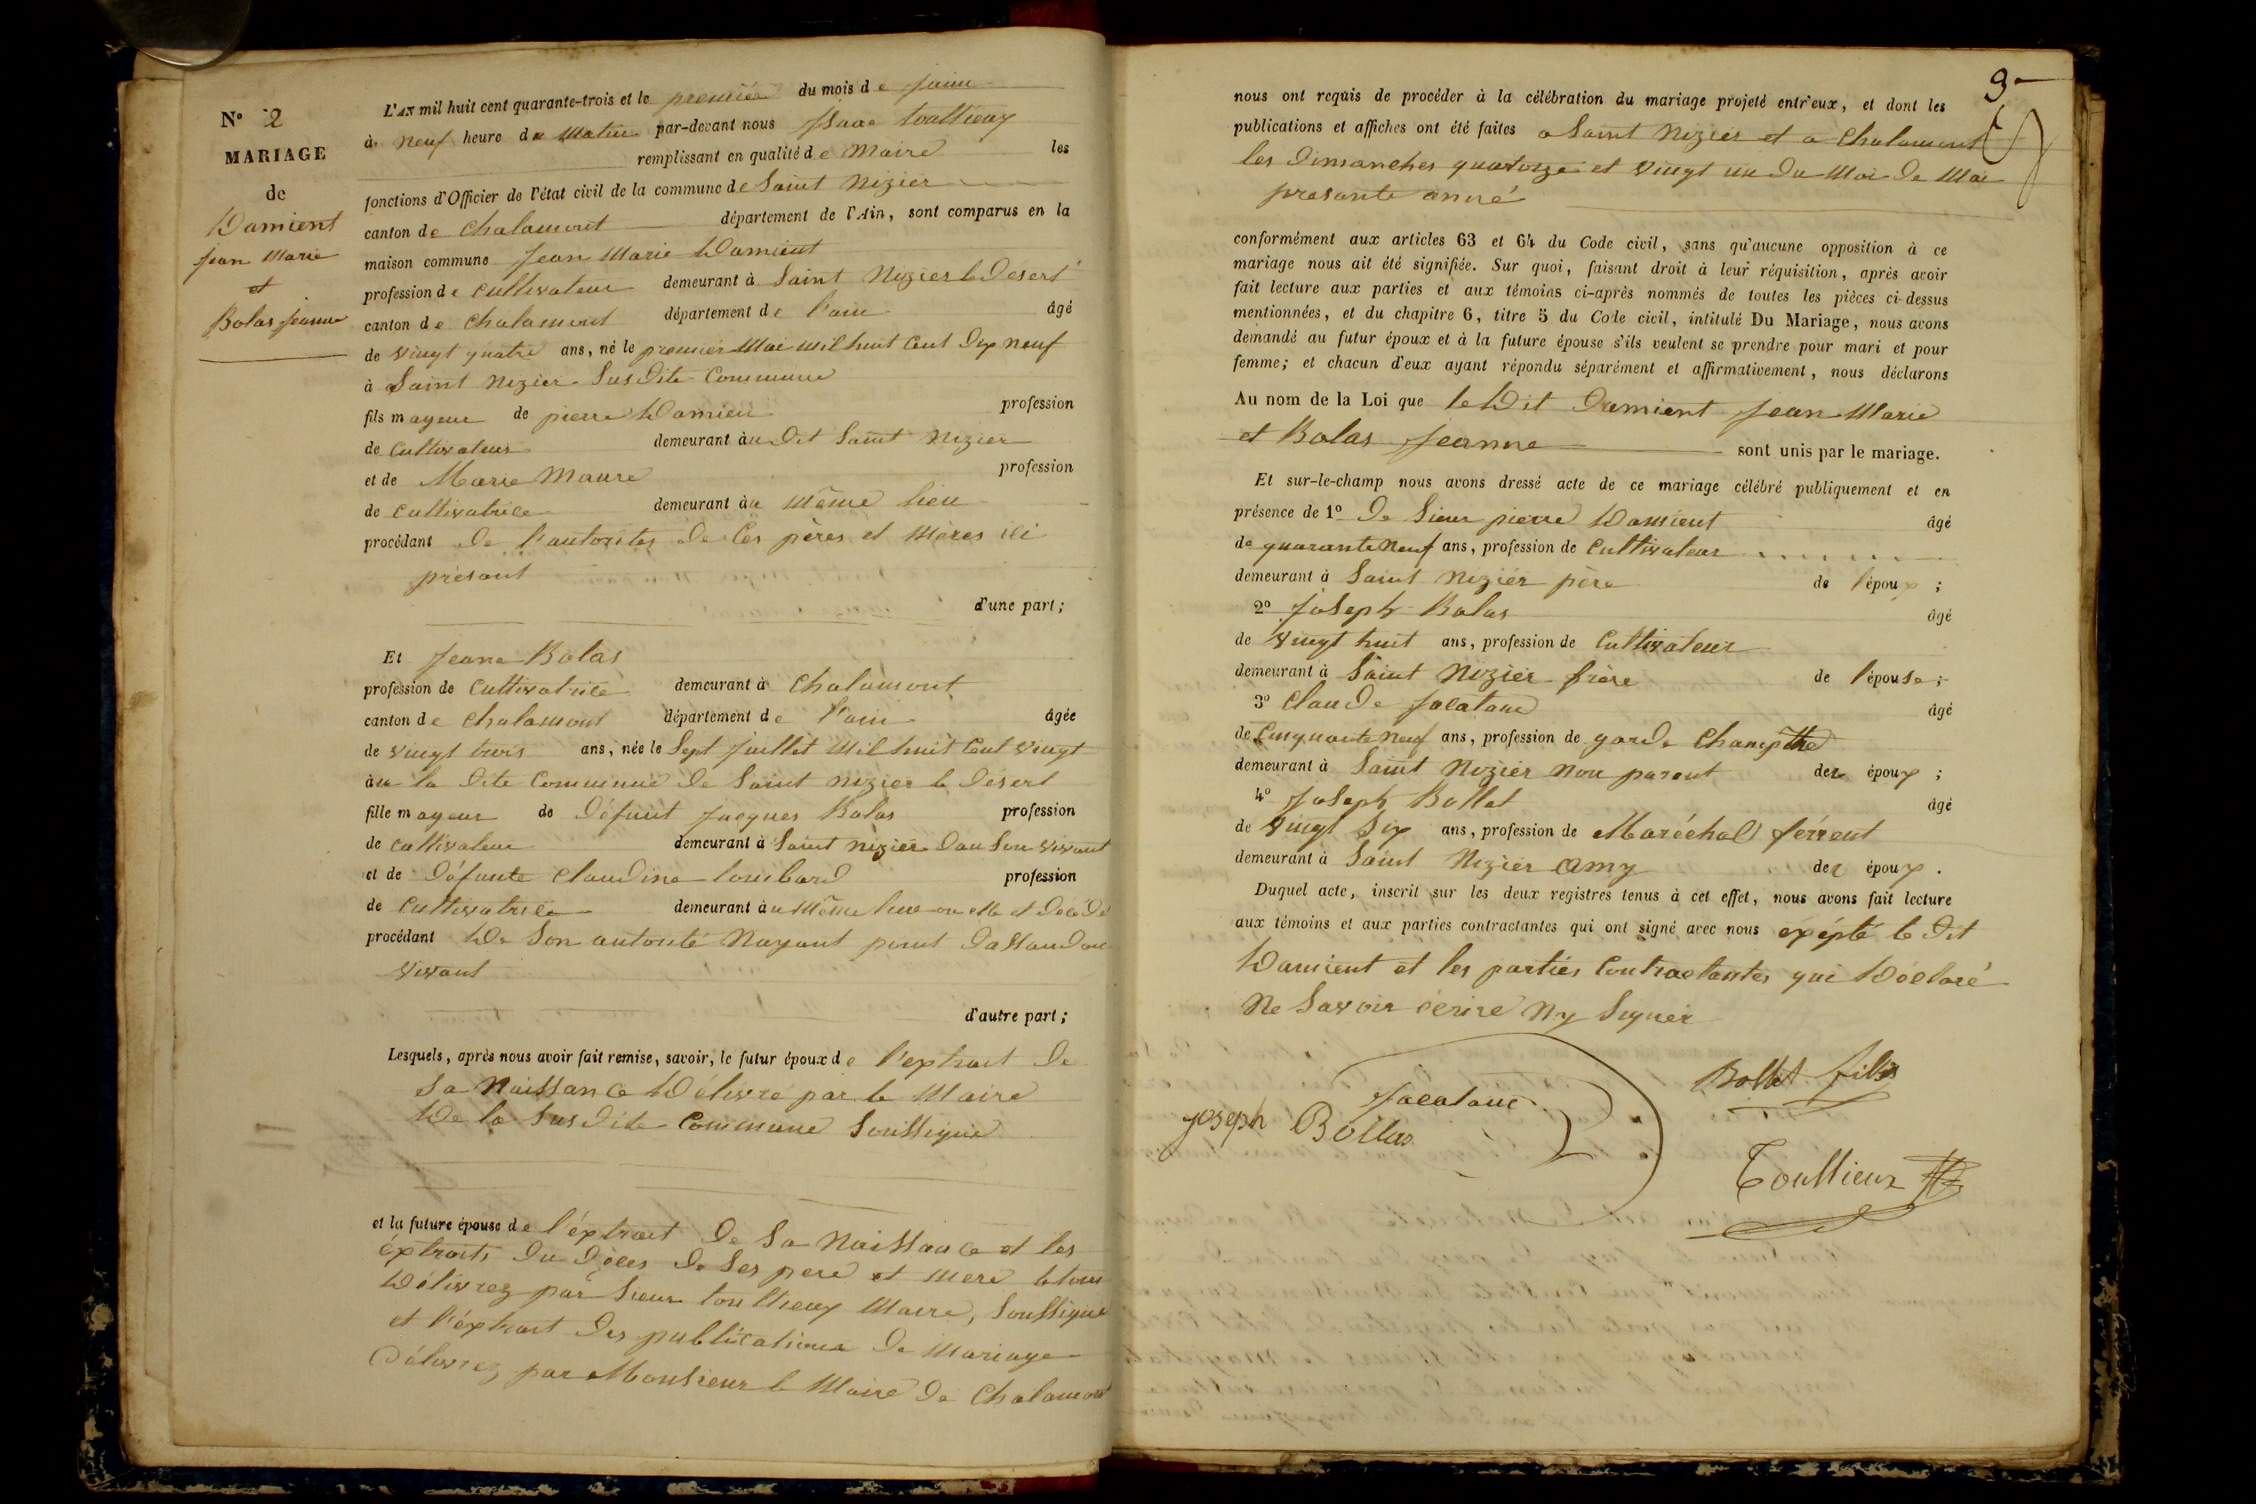 N° 2
MARIAGE
de
Damient
Jean Marie
et
Bolas Jeanne
L'AN mil huit cent quarante-trois et le premier du mois de Juin
à neuf heure du matin par-devant nous Isaac Toullieux
remplissant en qualité de Maire les
fonctions d'Officier de l'état civil de la commune de Saint Nizier
canton de Chalamont département de l'Ain, sont comparus en la
maison commune Jean Marie Damient
profession de Cultivateur demeurant à Saint Nizier le Désert
canton de Chalamont département de l'ain âgé
de vingt quatre ans, né le premier Mai mil huit Cent Dix neuf
à Saint Nizier Sus Dite Commune
fils mayeur de pierre Damien profession
de Cultivateur demeurant au Dit Saint Nizier
et de Marie Maure profession
de Cultivatrice demeurant au Même lieu
procédant De l'autorités De Ces pères et Mères ici
présant
d'une part ;
Et Jeane Bolas
profession de Cultivatrice demeurant à Chalamont
canton de Chalamont département de l'ain âgée
de vingt trois ans, née le Sept Juillet Mil huit Cent vingt
à la Dite Commune De Saint Nizier le Désert
fille mayeur de Défunt Jacques Bolas profession
de Cultivateur demeurant à Saint Nizier Dau Son vivant
et de Défunte Claudine Lombard profession
de Cultivatrice demeurant au Même lieu ou elle et Décédé
procédant De Son autorité Nayant point Dassandan
vivant
d'autre part ;
Lesquels, après nous avoir fait remise, savoir, le futur époux de l'extrait De
Sa Naissance Délivré par le Maire
De la Sus Dite Commune Soussigné
et la future épouse de l'éxtrait De Sa Naissance et les
éxtraits Du Dèces De Ses pere et Mere le tous
Délivrez par Sieur Toullieux Maire, Soussigné
et l'éxtrait Des publications De Mariage
Délivrez par Monsieur le Maire De Chalamont
3
nous ont requis de procéder à la célébration du mariage projeté entr'eux, et dont les
publications et affiches ont été faites a Saint Nizier et a Chalamont
les Dimanches quatorze et vingt un Du Moi De Mai
presante anné
conformément aux articles 63 et 64 du Code civil, sans qu'aucune opposition à ce
mariage nous ait été signifiée. Sur quoi, faisant droit à leur réquisition, après avoir
fait lecture aux parties et aux témoins ci-après nommés de toutes les pièces ci-dessus
mentionnées, et du chapitre 6, titre 5 du Code civil, intitulé Du Mariage, nous avons
demandé au futur époux et à la future épouse s'ils veulent se prendre pour mari et pour
femme; et chacun d'eux ayant répondu séparément et affirmativement, nous déclarons
Au nom de la Loi que le Dit Damient Jean Marie
et Bolas Jeanne sont unis par le mariage.
Et sur-le-champ nous avons dressé acte de ce mariage célébré publiquement et en
présence de 1° De Sieur pierre Damient âgé
de quarante Neuf ans, profession de Cultivateur
demeurant à Saint Nizier père de l'époux ;
2° Joseph Bolas âgé
de vingt huit ans, profession de Cultivateur
demeurant à Saint Nizier frère de l'épouse ;
3° Claude Jacatone âgé
de Cinquante Neuf ans, profession de garde Champètre
demeurant à Saint Nizier Non parent des époux ;
4° Joseph Bollet âgé
de vingt Six ans, profession de Maréchal férrent
demeurant à Saint Nizier amy des époux.
Duquel acte, inscrit sur les deux registres tenus à cet effet, nous avons fait lecture
aux témoins et aux parties contractantes qui ont signé avec nous éxépté le Dit
Damient et les partiés Contractantes qui Déclaré
Ne Savoir écrire Ny Signer
Jacatone
Bollet fils
Joseph Bollas
Toullieux